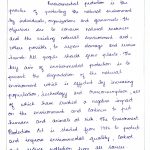 Environmental protection is the
practice of protecting the natural environment
by individuals, organisations and governments. Its
objectives are to conserve natural resources
and the existing natural environment and,
where possible, to repair damage and reverse
trends. All people should
way of environmental protection is to
prevent the degradation of the natural
environment which is affected by increasing
population, technology and overconsumption, all
of which have created a negative impact
on the environment and continue to put
humans and animals at risk. The Environment
Protection Act is started from 1986 to protect
and improve environmental quality, control
and reduce pollution from all sources